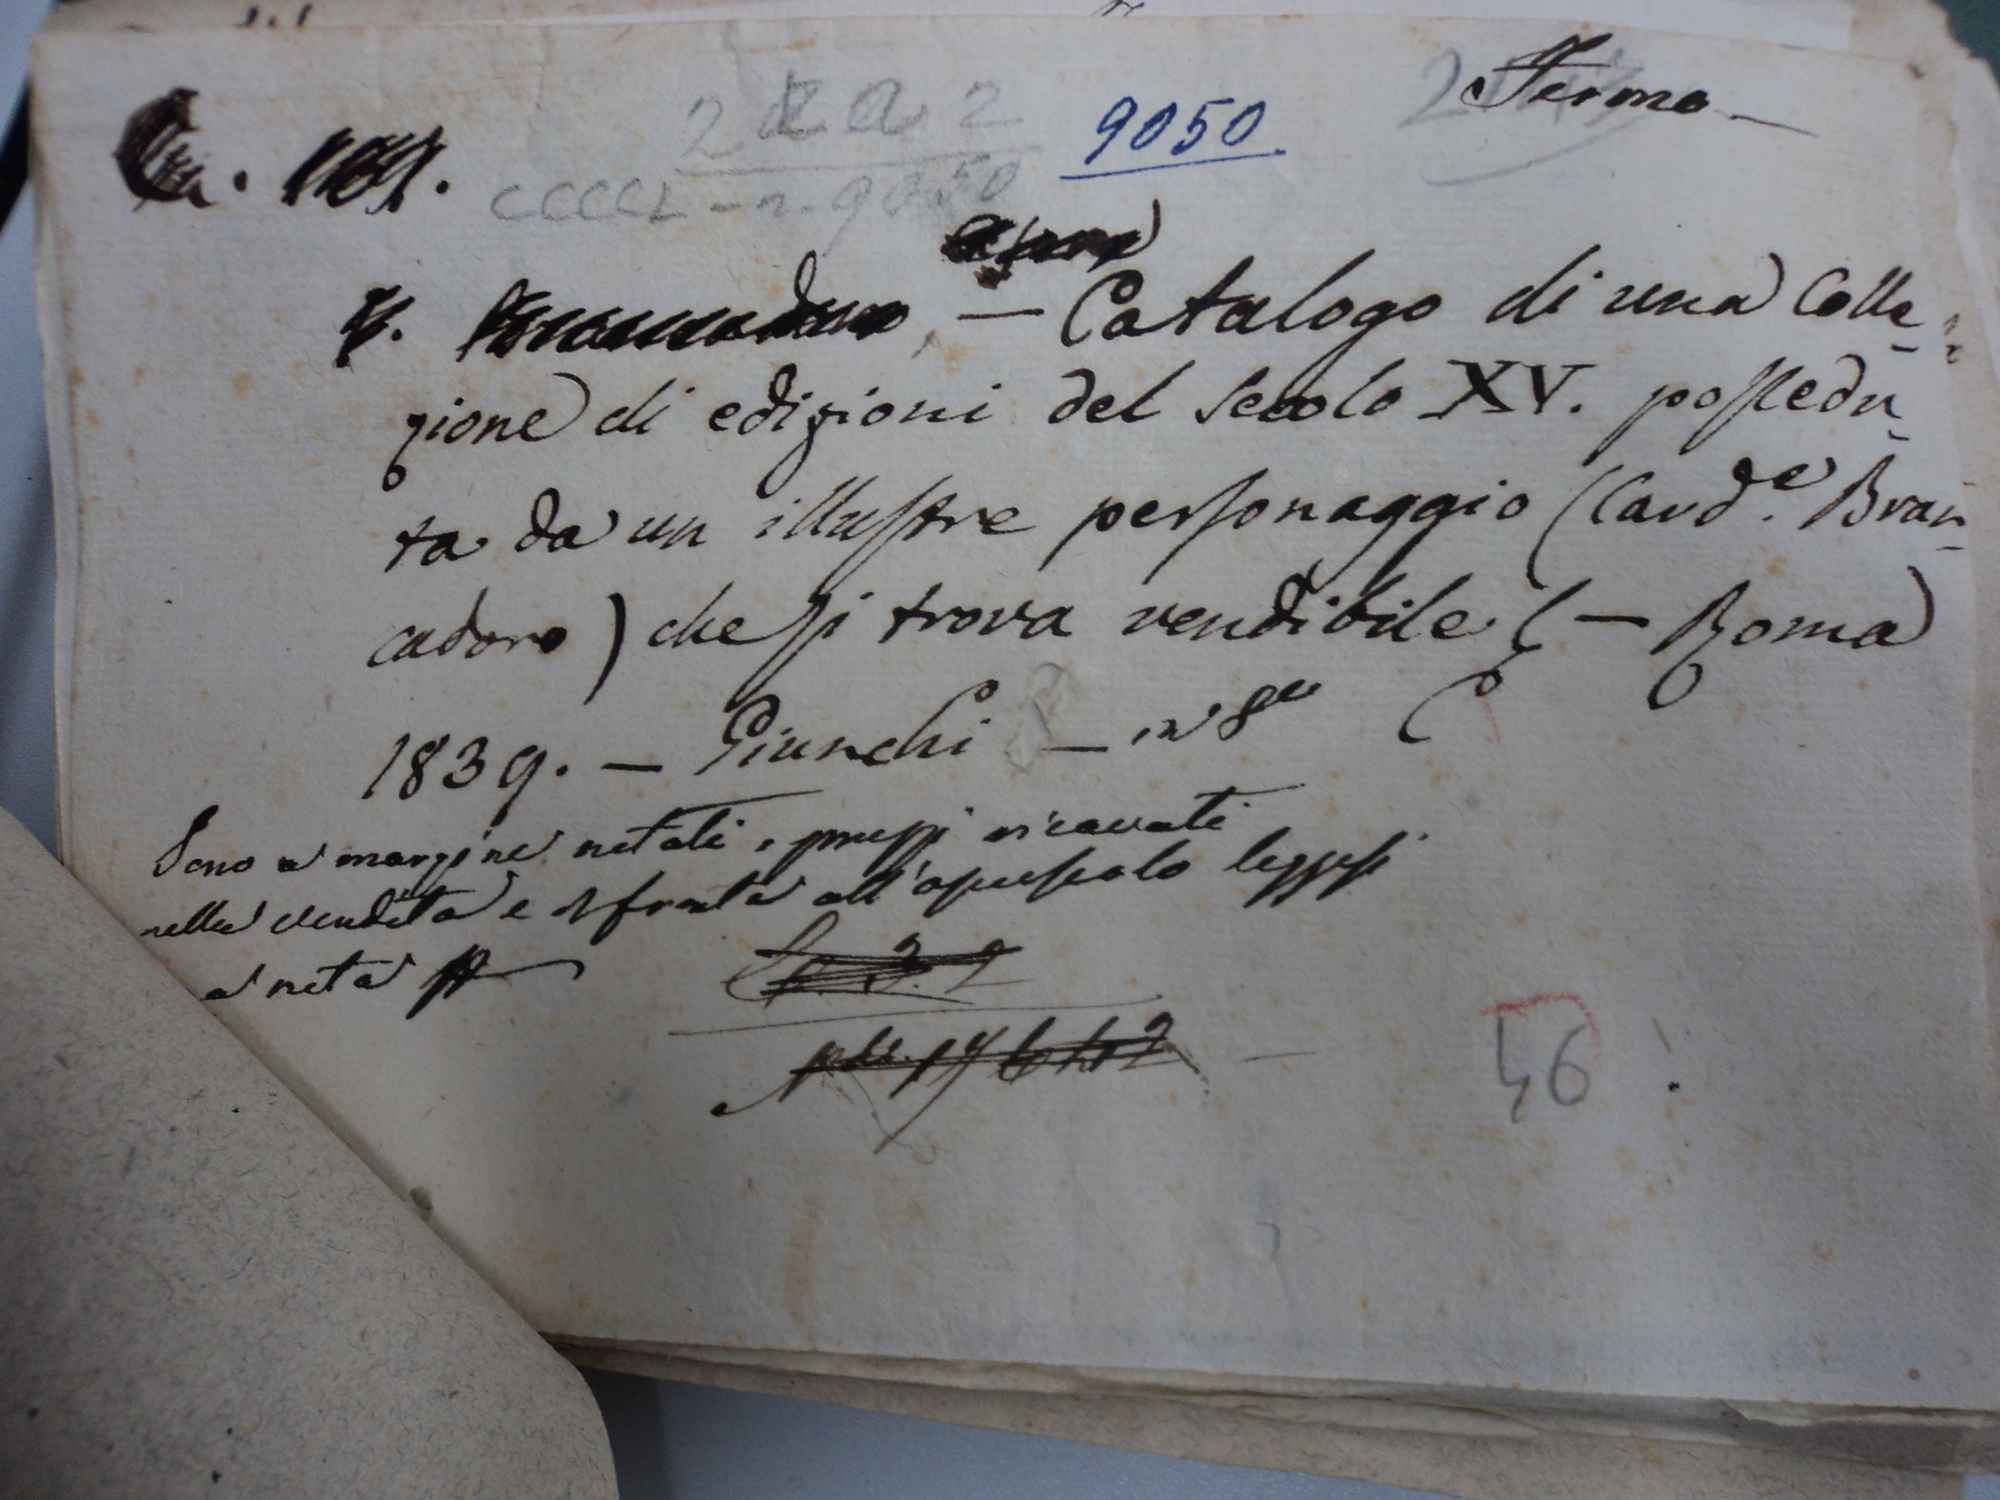 Fermo
9050
2 a 2
CCCCL - n. 9050
— Catalogo di una Colle-
zione di edizioni del secolo XV. possedu-
ta da un illustre personaggio (Card.e Bran-
cadoro) che si trova vendibile — Roma
1839. — Giunchi — in 8°
Sono a margine notati i prezzi ricavati
nella vendita e di fronte all'opuscolo leggesi
a nota
46